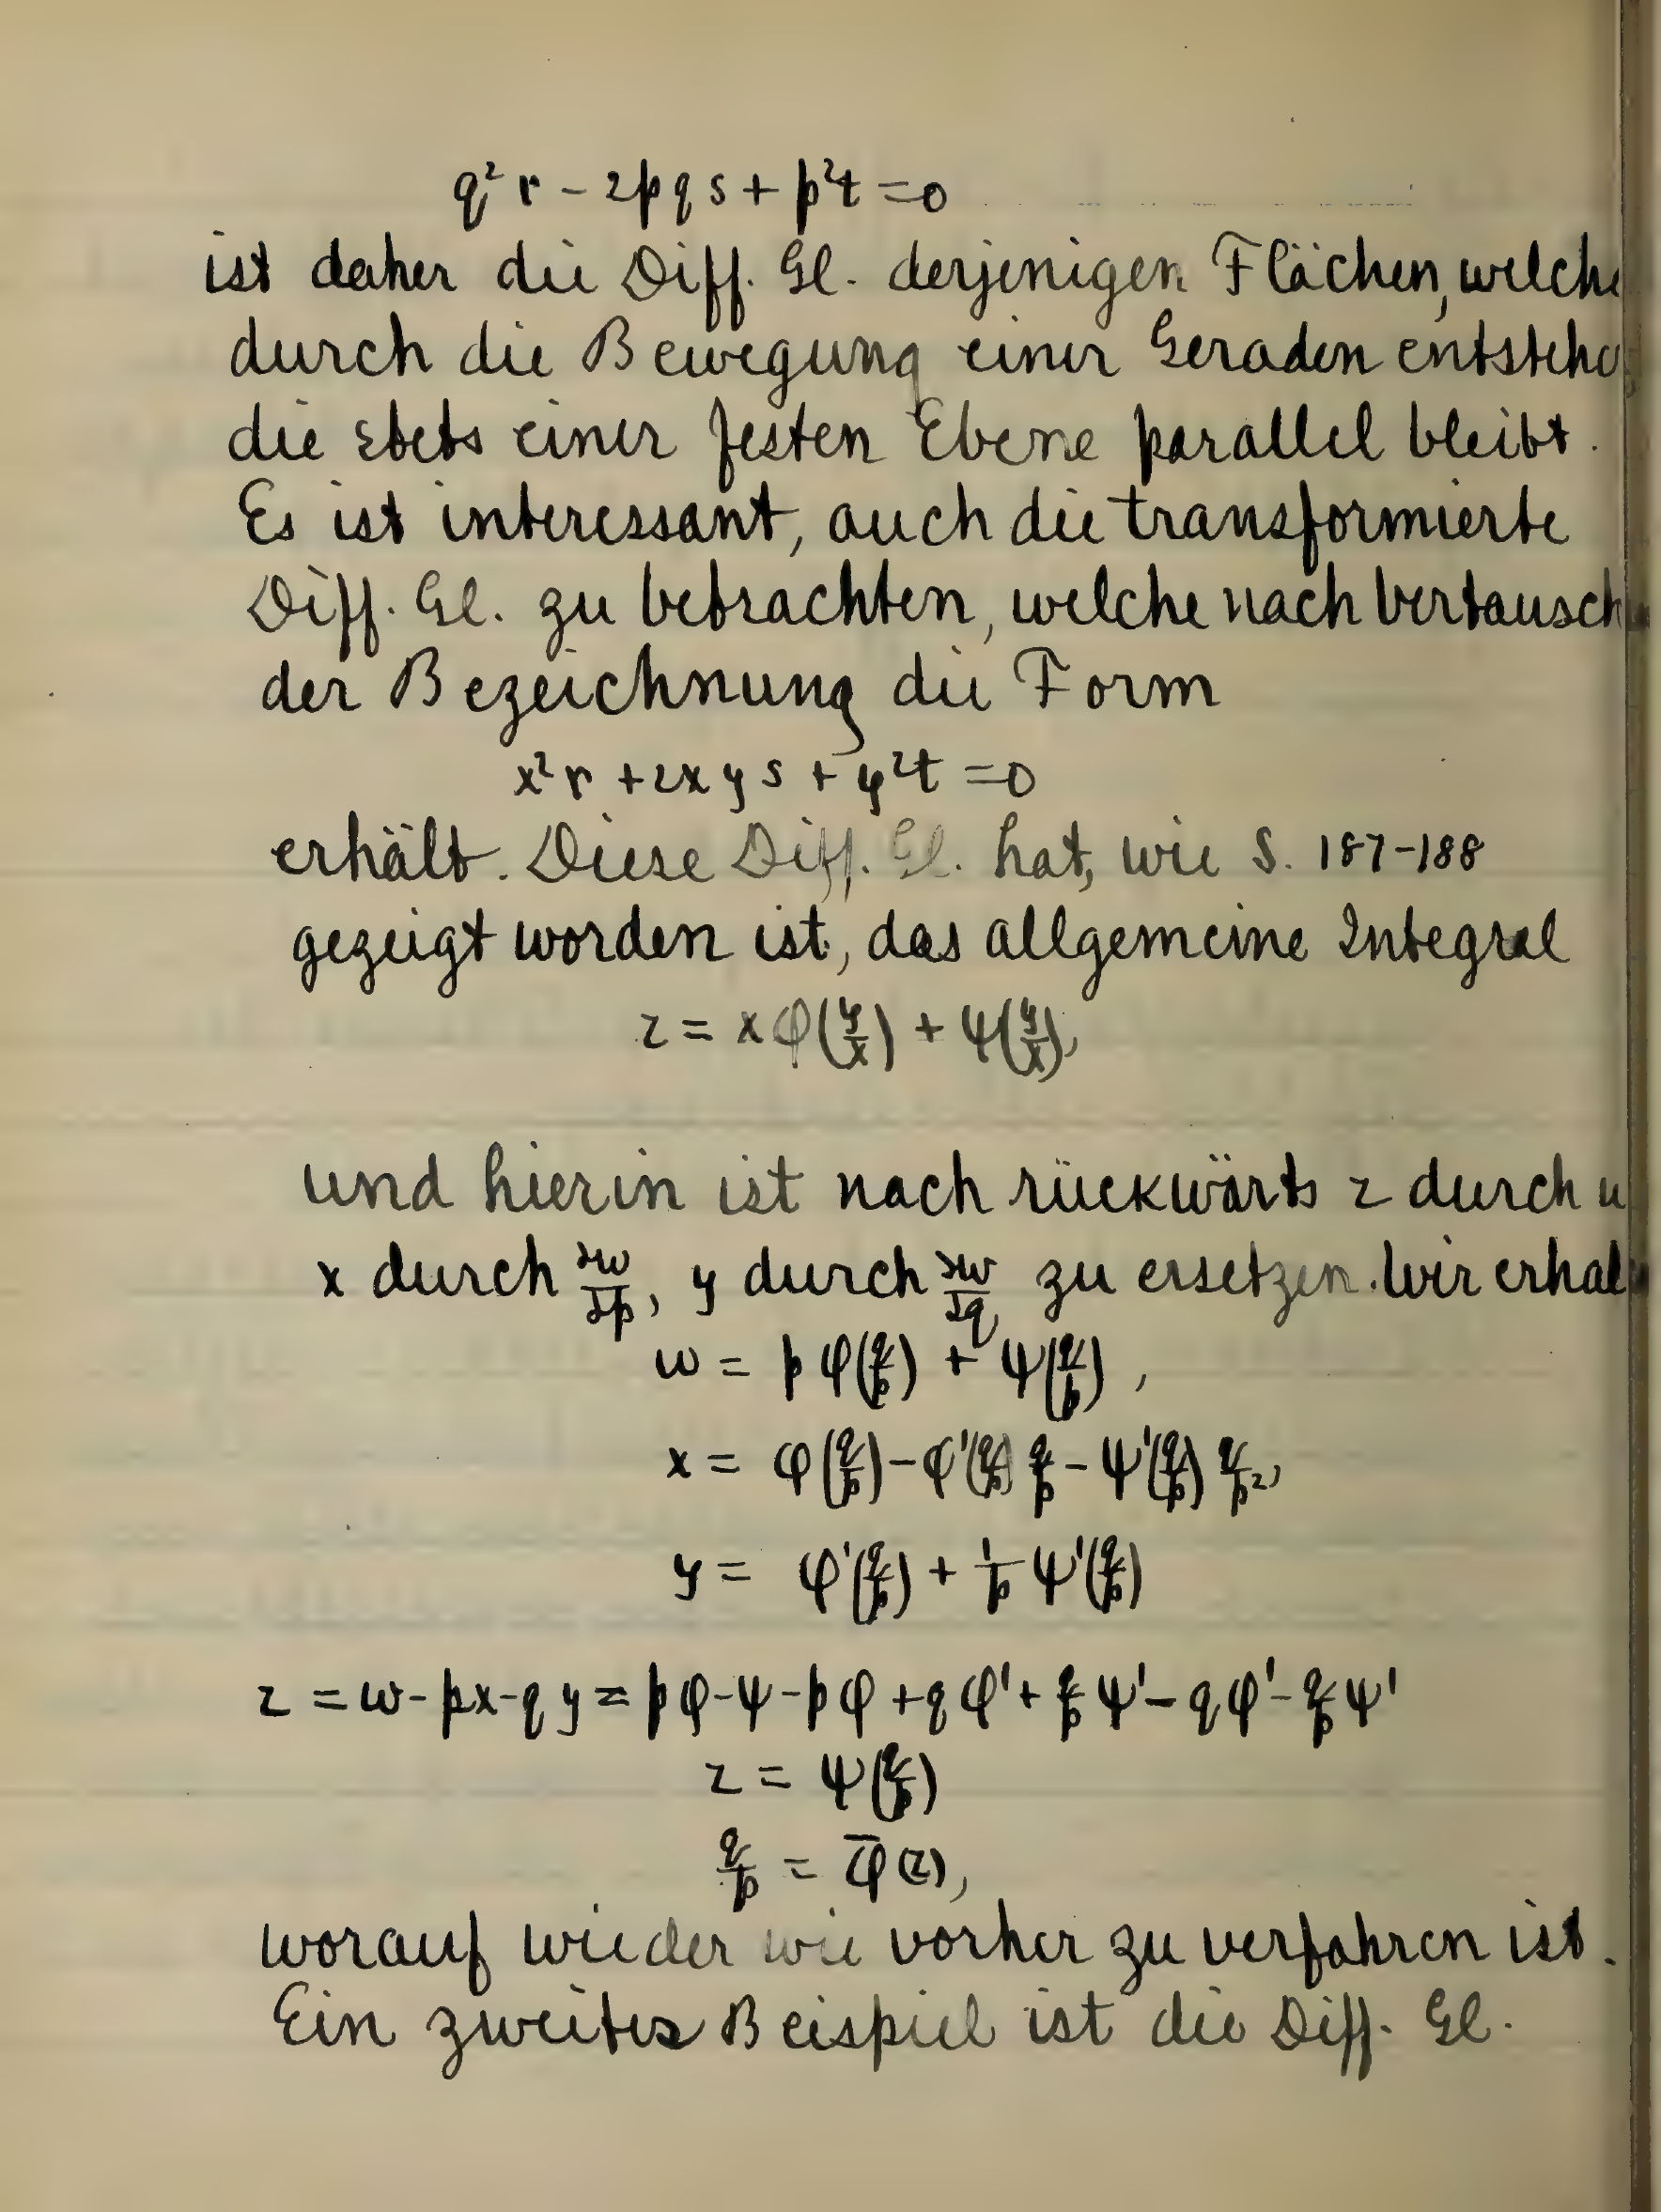 q² r − 2pqs + p²t = 0
ist daher die Diff. Gl. derjenigen Flächen, welche
durch die Bewegung einer Geraden entstehe
die stets einer festen Ebene parallel bleibt.
Es ist interessant, auch die transformierte
Diff. Gl. zu betrachten, welche nach Vertausch
der Bezeichnung die Form
x² r + 2xys + y²t = 0
erhält. Diese Diff. Gl. hat, wie S. 187-188
gezeigt worden ist, das allgemeine Integral
z = x φ(y/x) + ψ(y/x),
und hierin ist nach rückwärts z durch
x durch ∂w/∂p, y durch ∂w/∂q zu ersetzen. Wir erhal
w = p φ(q/p) + ψ(q/p),
x = φ(q/p) − φ'(q/p) q/p − ψ'(q/p) q/p²,
y = φ'(q/p) + 1/p ψ'(q/p)
z = w − px − qy = pφ − ψ − pφ + qφ' + q/p ψ' − qφ' − q/p ψ'
z = ψ(q/p)
q/p = φ̅(z),
worauf wieder wie vorher zu verfahren ist.
Ein zweites Beispiel ist die Diff. Gl.